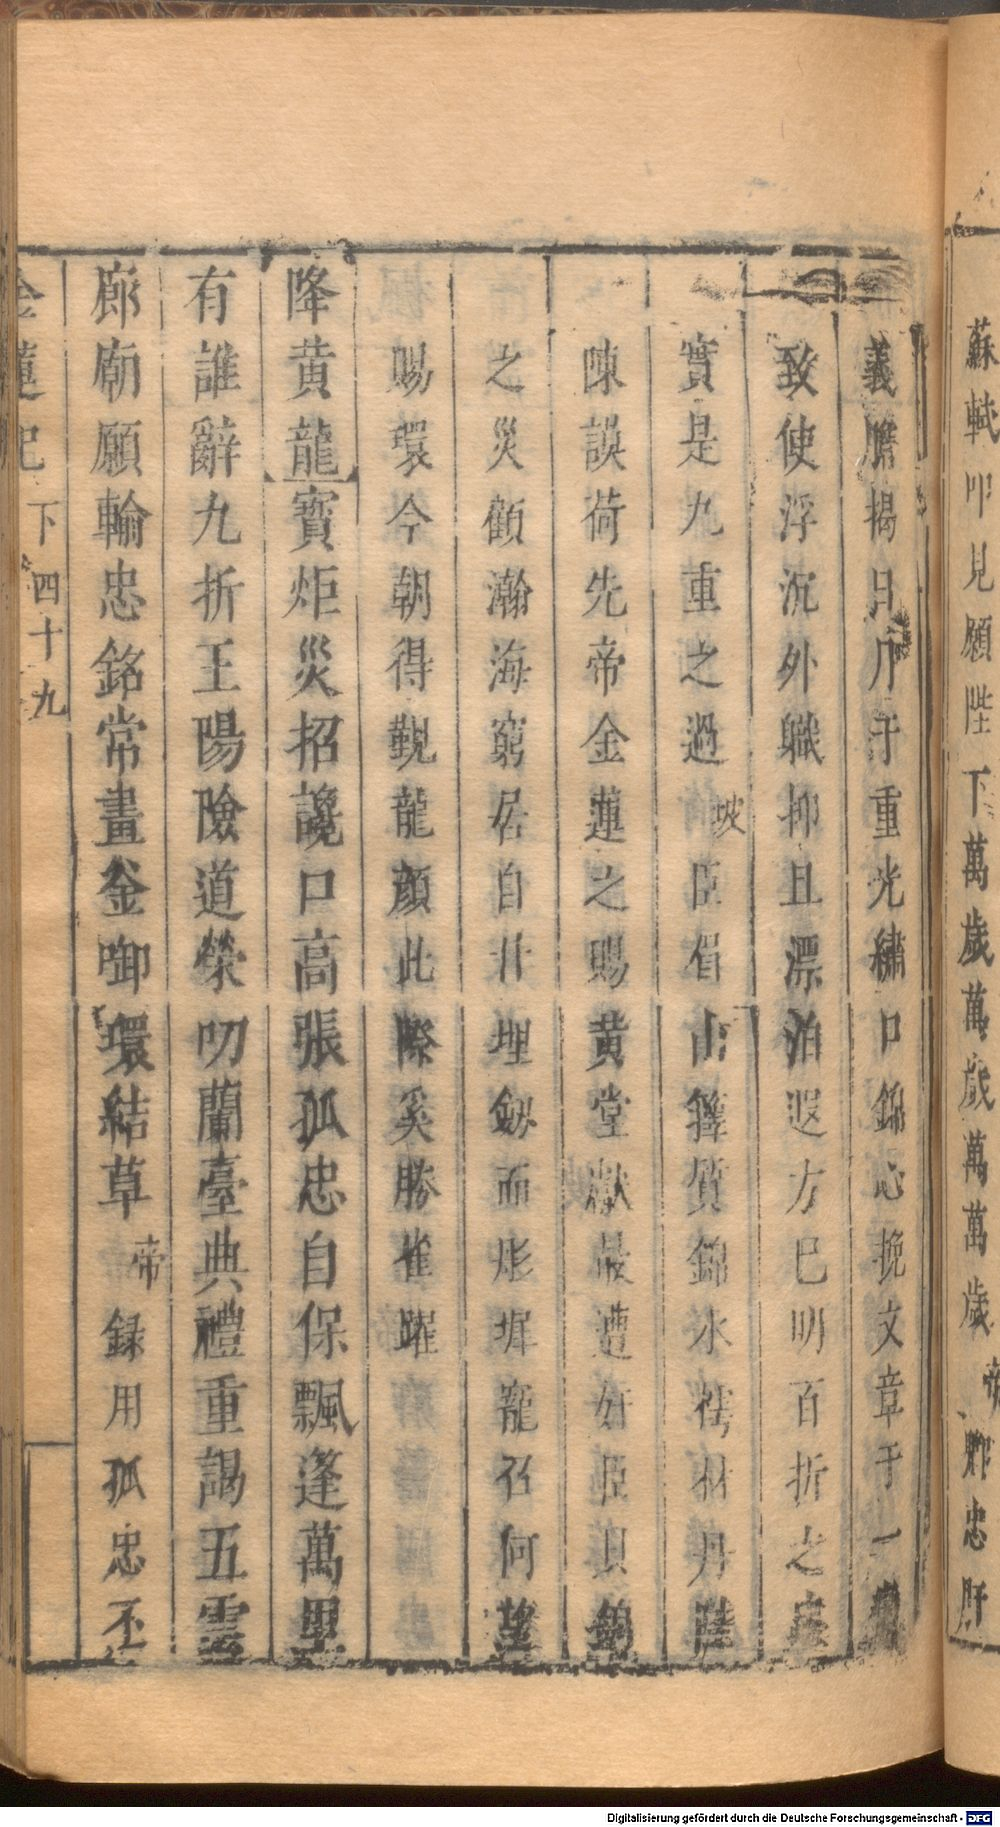 蘇軾叩見願陛下萬歲萬歲萬萬歲 帝 爾忠肝
義膽揭日月于重光繡口錦心挽文章于一
致使浮沉外職抑且漂泊遐方巳明百折之忠
實是九重之過 坡 臣眉山籜質錦水樗材丹陛
陳謨荷先帝金蓮之賜黄堂獻最遭奸臣貝錦
之災顧瀚海窮居自甘埋劔而彤墀寵召何望
賜環今朝得覲龍顔此際奚勝雀躍
降黄龍 寳炬災招讒口高張孤忠自保飄蓬萬里
有誰辭九折王陽險道榮叨蘭臺典禮重謁五雲
廊廟願輸忠銘常畫釜啣環結草 帝 録用孤忠丕
金蓮記 下 四十九
Digitalisierung gefördert durch die Deutsche Forschungsgemeinschaft - DFG